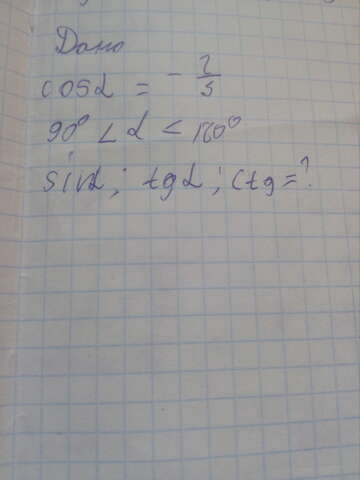 Дано
cos α = - 2/3
90° < α < 180°
sin α; tg α; ctg = ?